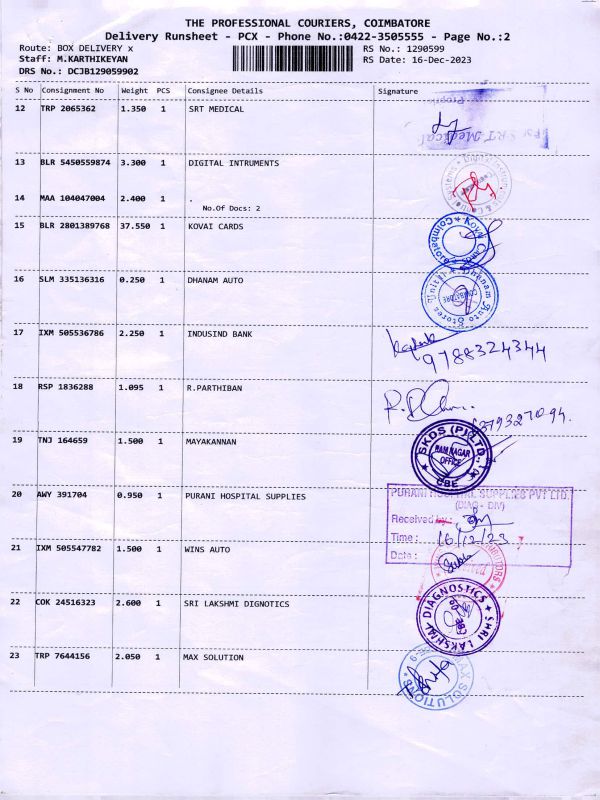 THE PROFESSIONAL COURIERS, COIMBATORE
Delivery Runsheet - PCX - Phone No.:0422-3505555 - Page No.:2
Route: BOX DELIVERY x RS No.: 1290599
Staff: M.KARTHIKEYAN RS Date: 16-Dec-2023
DRS No.: DCJB129059902
S No Consignment No Weight PCS Consignee Details Signature
12 TRP 2065362 1.350 1 SRT MEDICAL
For SRT Medical
13 BLR 5450559874 3.300 1 DIGITAL INTRUMENTS
14 MAA 104047004 2.400 1 .
No.Of Docs: 2
15 BLR 2801389768 37.550 1 KOVAI CARDS
Kovai Cards ★ Coimbatore ★
16 SLM 335136316 0.250 1 DHANAM AUTO
COIMBATORE
17 IXM 505536786 2.250 1 INDUSIND BANK
9788324344
18 RSP 1836288 1.095 1 R.PARTHIBAN
19 TNJ 164659 1.500 1 MAYAKANNAN
SKDS (P) LTD
RAM NAGAR
OFFICE
CBE
20 AWY 391704 0.950 1 PURANI HOSPITAL SUPPLIES
PURANI HOSPITAL SUPPLIES PVT LTD.
(DIAG - DIV)
Received by:
Time : 16/12/23
Date :
21 IXM 505547782 1.500 1 WINS AUTO
22 COK 24516323 2.600 1 SRI LAKSHMI DIGNOTICS
SHRI LAKSHMI DIAGNOSTICS
23 TRP 7644156 2.050 1 MAX SOLUTION
MAX SOLUTIONS